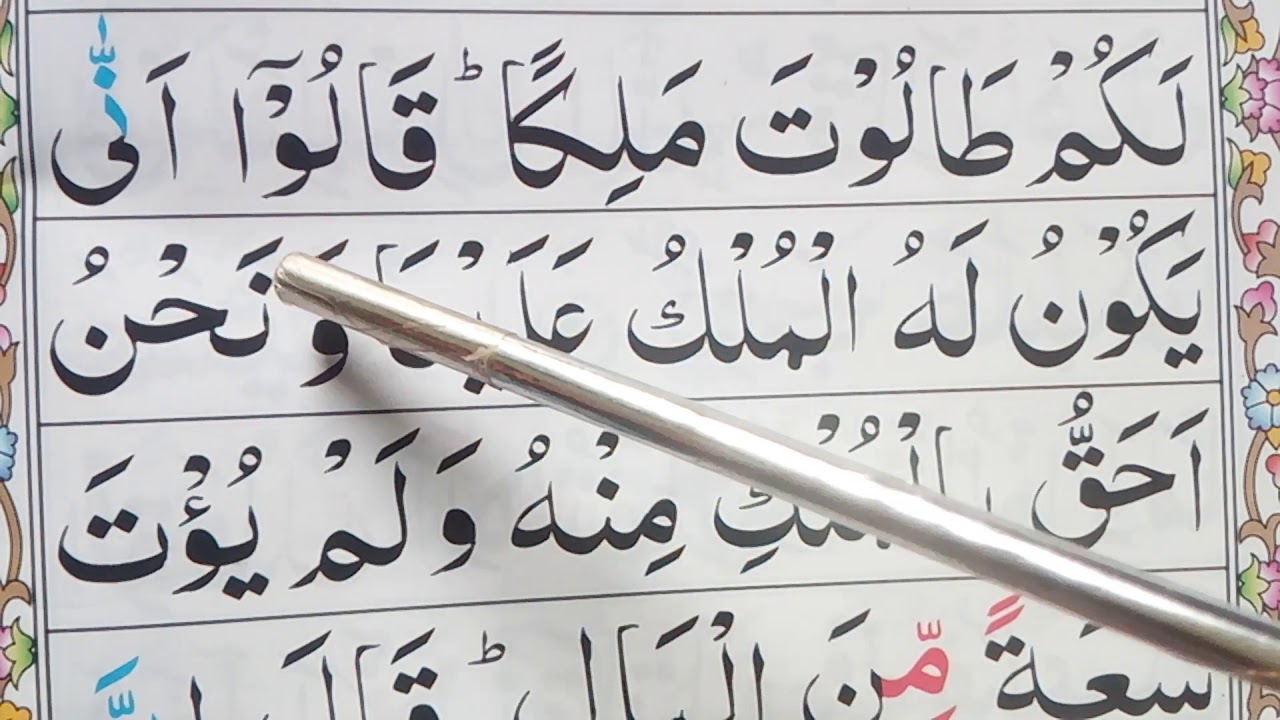 لَكُمْ طَالُوْتَ مَلِكًا ؕ قَالُوْۤا اَنّٰى
يَكُوْنُ لَهُ الْمُلْكُ عَلَيْنَا وَنَحْنُ
اَحَقُّ بِالْمُلْكِ مِنْهُ وَلَمْ يُؤْتَ
سَعَةً مِّنَ الْمَالِ ؕ قَالَ